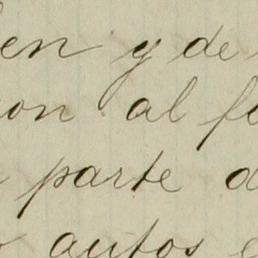 en y de
on al
parte d
autos